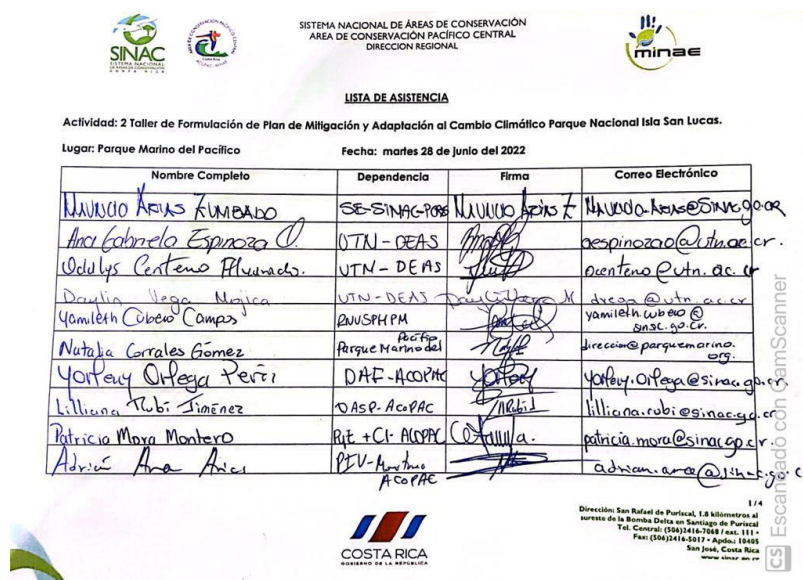 SINAC
SISTEMA NACIONAL
DE ÁREAS DE CONSERVACIÓN
COSTA RICA
SISTEMA NACIONAL DE ÁREAS DE CONSERVACIÓN
AREA DE CONSERVACIÓN PACÍFICO CENTRAL
DIRECCION REGIONAL
minae
LISTA DE ASISTENCIA
Actividad: 2 Taller de Formulación de Plan de Mitigación y Adaptación al Cambio Climático Parque Nacional Isla San Lucas.
Lugar: Parque Marino del Pacífico Fecha: martes 28 de junio del 2022
Nombre Completo Dependencia Firma Correo Electrónico
Mauricio Arias Zumbado SE-SINAC Mauricio Arias Z
Ana Gabriela Espinoza O. UTN-DEAS aespinozao@utn.ac.cr.
Odulys Centeno Alvarado. UTN-DEAS ocenteno@utn.ac.cr
Daylin Vega Mojica UTN-DEAS dvega@utn.ac.cr
Yamileth Cubero Campos RNVSPHPM yamileth.cubero@
sinac.go.cr.
Natalia Corrales Gómez Parque Marino del Pacífico direccion@parquemarino.
org.
Yorleny Ortega DAF-ACOPAC yorleny.ortega@sinac.go.cr.
Lilliana Rubi Jiménez DASP-ACOPAC lilliana.rubi@sinac.go.cr
Patricia Mora Montero ACOPAC patricia.mora@sinac.go.cr.
Adrián Arce Arias ACOPAC
1/4
Dirección: San Rafael de Puriscal, 1.8 kilómetros al
sureste de la Bomba Delta en Santiago de Puriscal
Tel. Central: (506)2416-7068 / ext. 111 -
Fax: (506)2416-5017 - Apdo.: 10405
San José, Costa Rica
www.sinac.go.cr
COSTA RICA
GOBIERNO DE LA REPÚBLICA
CS Escaneado con CamScanner